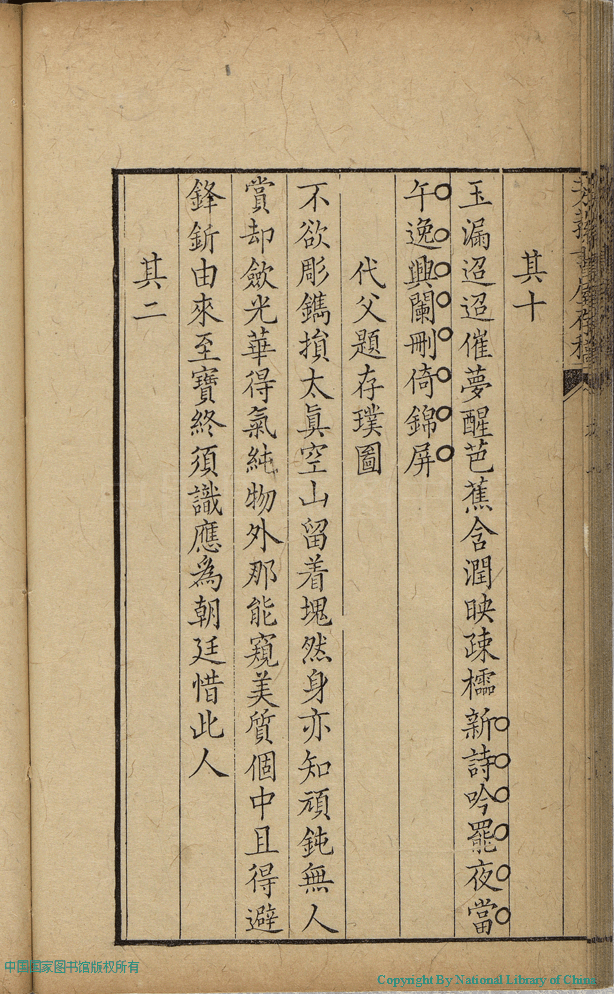 其十
玉漏迢迢催夢醒芭蕉含潤映疎櫺新詩吟罷夜當
午逸興闌刪倚錦屏
代父題存璞圖
不欲彫鐫損太眞空山留着塊然身亦知頑鈍無人
賞却斂光華得氣純物外那能窺美質個中且得避
鋒釿由來至寶終須識應爲朝廷惜此人
其二
中国国家图书馆版权所有
Copyright By National Library of China